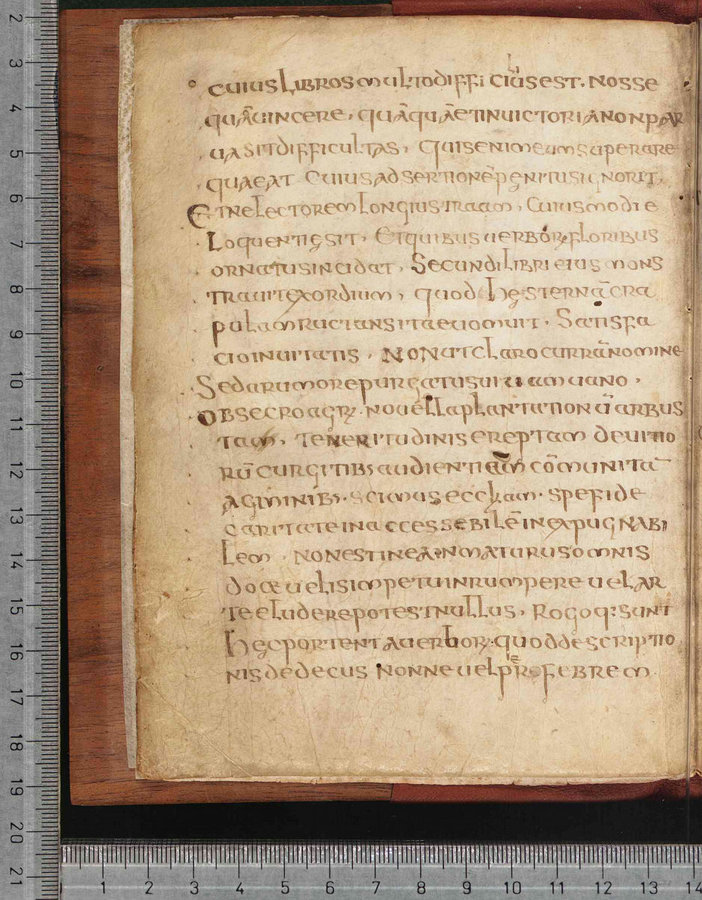 cuius libros multo difficilius est. nosse
quā uincere. quāquā et in uictoria non par
ua sit difficultas. Quis enim eum superare
queat cuius adsertionē penitus ignorit.
Et ne lectorem longius traam. Cuius modi e
loquentię sit. Et quibus uerborꝝ floribus
ornatus incidat. Secundi libri eius mons
trauit exordium. quod hęsternā cra
pulam ructans ita euomuit. Satis fa
cio inuitatis. Non ut claro currā nomine
Sed a rumore purgatus uiuam uano.
Obsecro agrꝝ. nouella plantationū arbus
tam. teneritudinis ereptam de uitio
rū curgitibꝫ audientiam cōmunita
agminibꝫ. scimus eccłam. spe fide
caritate inaccessebilē inexpugnabi
lem. non est in ea inmaturus omnis
docœ uel is impetu inrumpere uel ar
te eludere potest nullus. Rogo q: sunt
hęc portenta uerborꝝ. quod descriptio
nis dedecus nonne uel p̄r se febrem
2
3
4
5
6
7
8
9
10
11
12
13
14
15
16
17
18
19
20
21
1 2 3 4 5 6 7 8 9 10 11 12 13 14